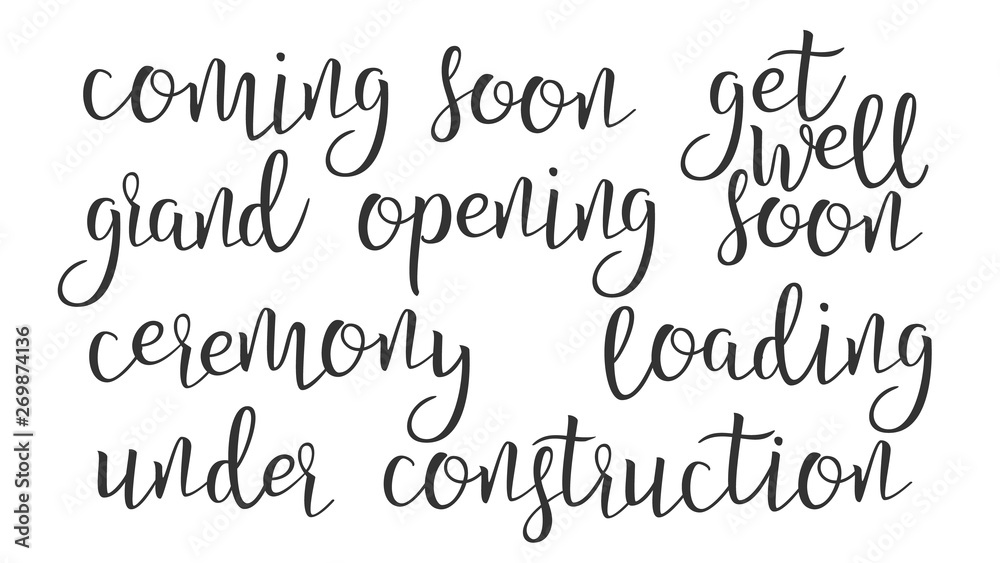 coming soon
get
well
soon
grand opening
ceremony
loading
under construction
Adobe Stock | #269874136